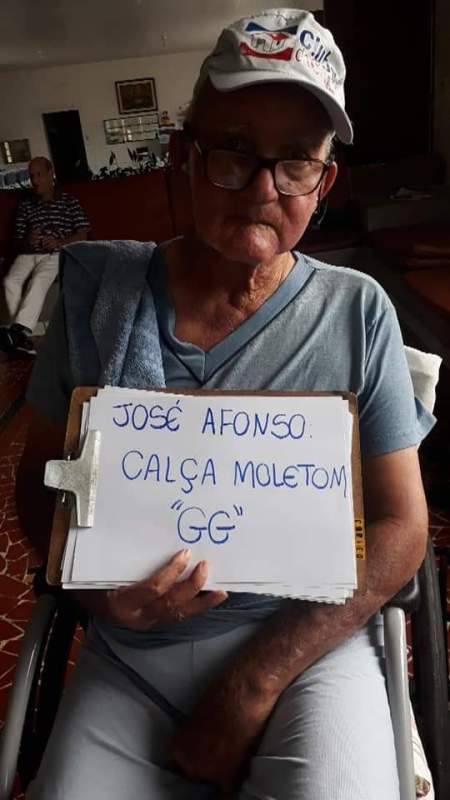 JOSÉ AFONSO:
CALÇA MOLETOM
"GG"